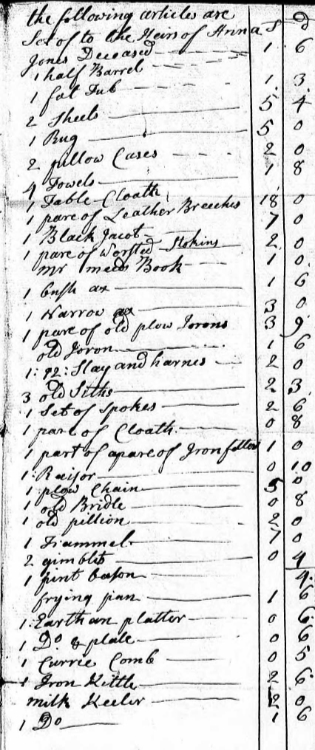 the following articles are S d
Set of to the Heirs of Anna
Jones Deceased 1 6
1 half Barrel
1 fat Tub 1 3
2 Sheets 5 4
1 Rug 5 0
2 pillow Cases 2 0
4 Towels 1 8
1 Table Cloath
1 pare of Leather Breeches 18 0
1 Black Jacot 7 0
1 pare of Worsted Stokins 2 0
mr meeds Book 1 0
1 bush ax 1 6
1 Narrow ax 3 0
1 pare of old plow Jorons 3 9
old Joron 1 6
1: 92: Slay and harnes 2 0
3 old Siths 2 3
1 Set of Spokes 2 6
1 pare of Cloath 0 8
1 part of a pare of Iron fetters 1 0
1: Raisor 0 10
1 plow Chain 5 0
1 old Bridle 0 8
1 old pillion 2 0
1 Trammel 7 0
2 gimblets 0 4
1 pint bason 4
frying pan 1 6
1: Earthan platter 0 6
1 Do & plate 0 6
1 Currie Comb 0 5
1 Iron Kittle 2 6
milk Keeler 2 0
1 Do 1 6